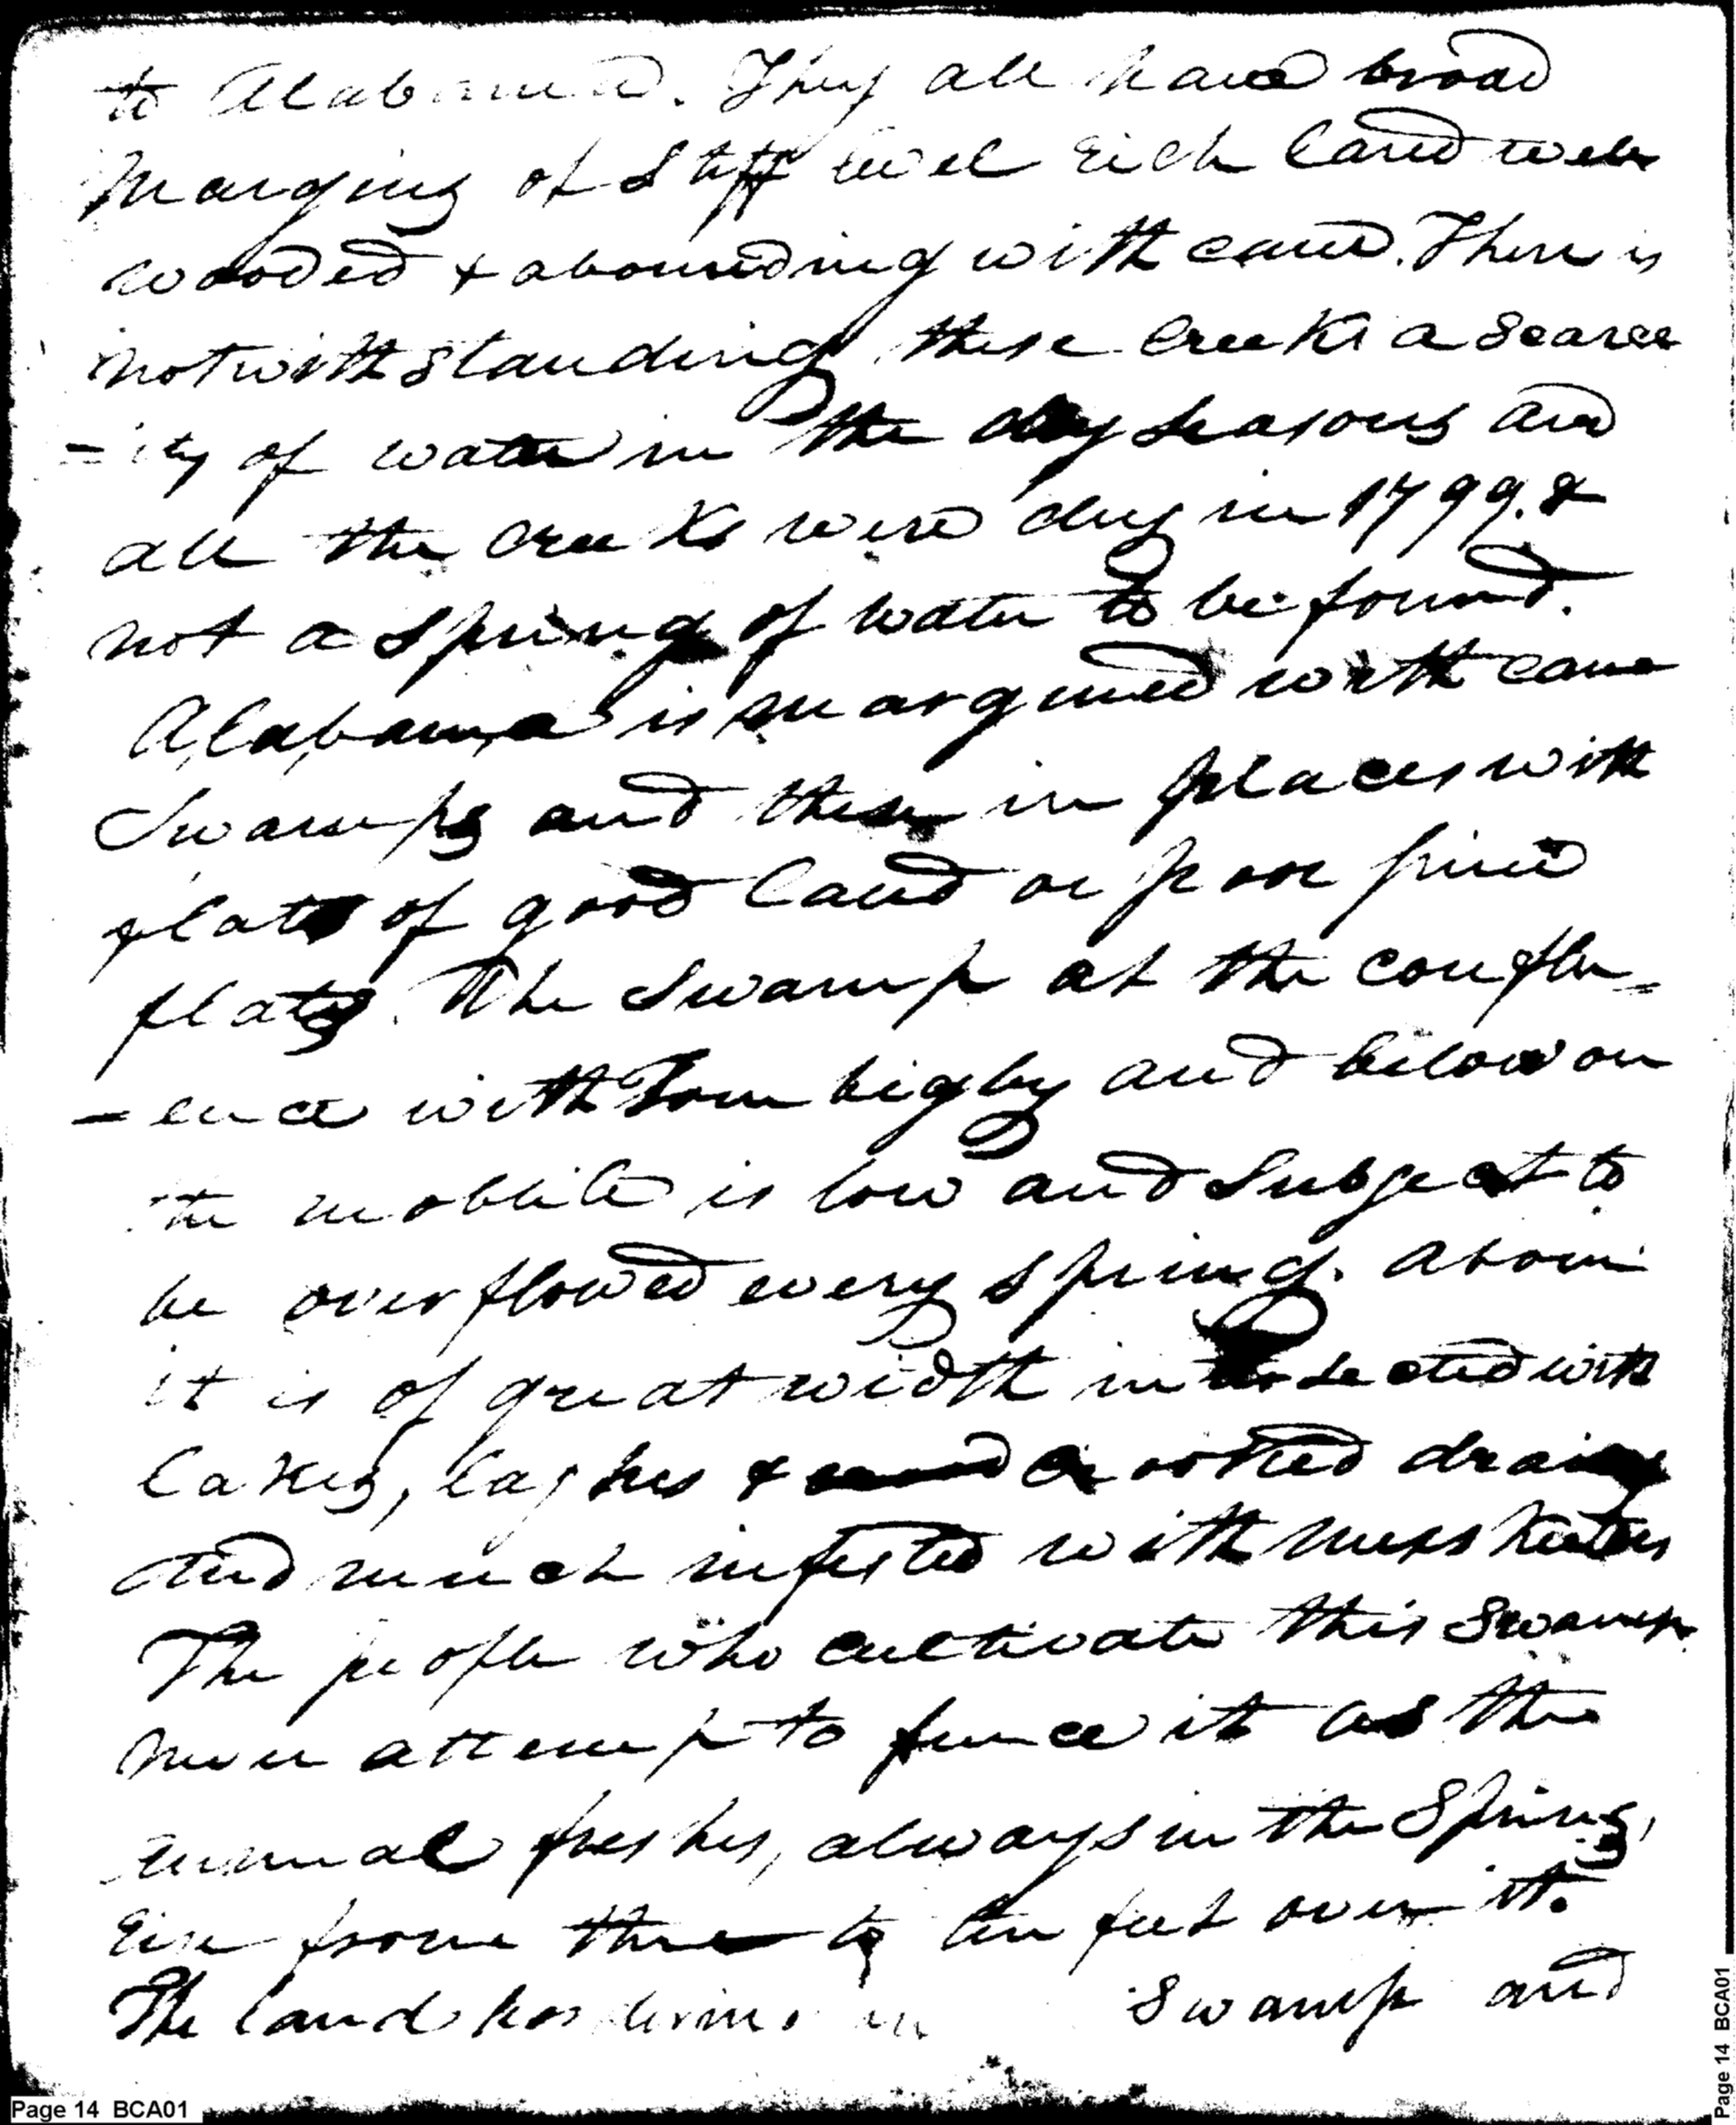 to Alabama. They all have broad
margins of stiff level rich land well
wooded & abounding with cane. There is
notwithstanding these creeks a scarce
=ity of water in the dry seasons and
all the creeks were dry in 1799. &
not a spring of water to be found.
Alabama is margined with cane
Swamps and these in places with
flats of good land or poor pine
flats. The Swamp at the conflu=
-ence with Tombigby and below on
the mobile is low and Subject to
be overflowed every spring. Above
it is of great width intersected with
lakes, slashes & crooked drains
and much infested with muskeetoes
The people who cultivate this Swamp
never attempt to fence it as the
annual freshes, always in the Spring,
rise from three to ten feet over it.
The land bordering on Swamp and
Page 14 BCA01
Page 14 BCA01